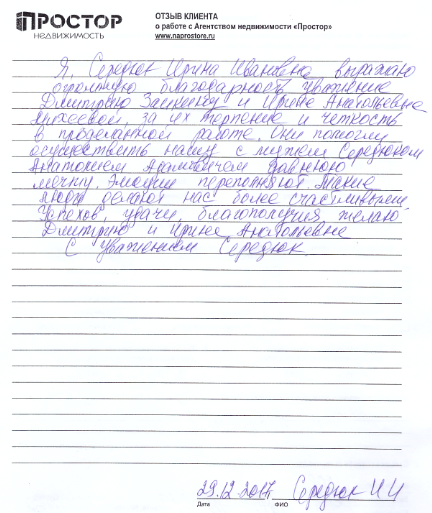 ПРОСТОР
НЕДВИЖИМОСТЬ
ОТЗЫВ КЛИЕНТА
о работе с Агентством недвижимости «Простор»
www.naprostore.ru
Я, Середюк Ирина Ивановна выражаю
огромную благодарность уважение
Дмитрию и Ирине Анатольевне
Михеевой, за их терпение и четкость
в проделанной работе. Они помогли
осуществить нашу с мужем Середюком
Анатолием давнюю
мечту. Эмоции переполняют. Такие
люди делают нас более счастливыми.
Успехов, удачи, благополучия желаю
Дмитрию и Ирине Анатольевне
С уважением Середюк
29.12.2017г Середюк И И
Дата ФИО